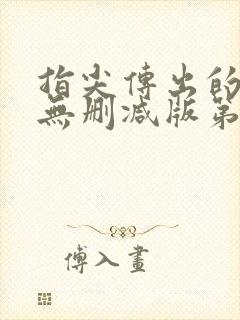 指尖傳出的
無刪減版第
傅入畫